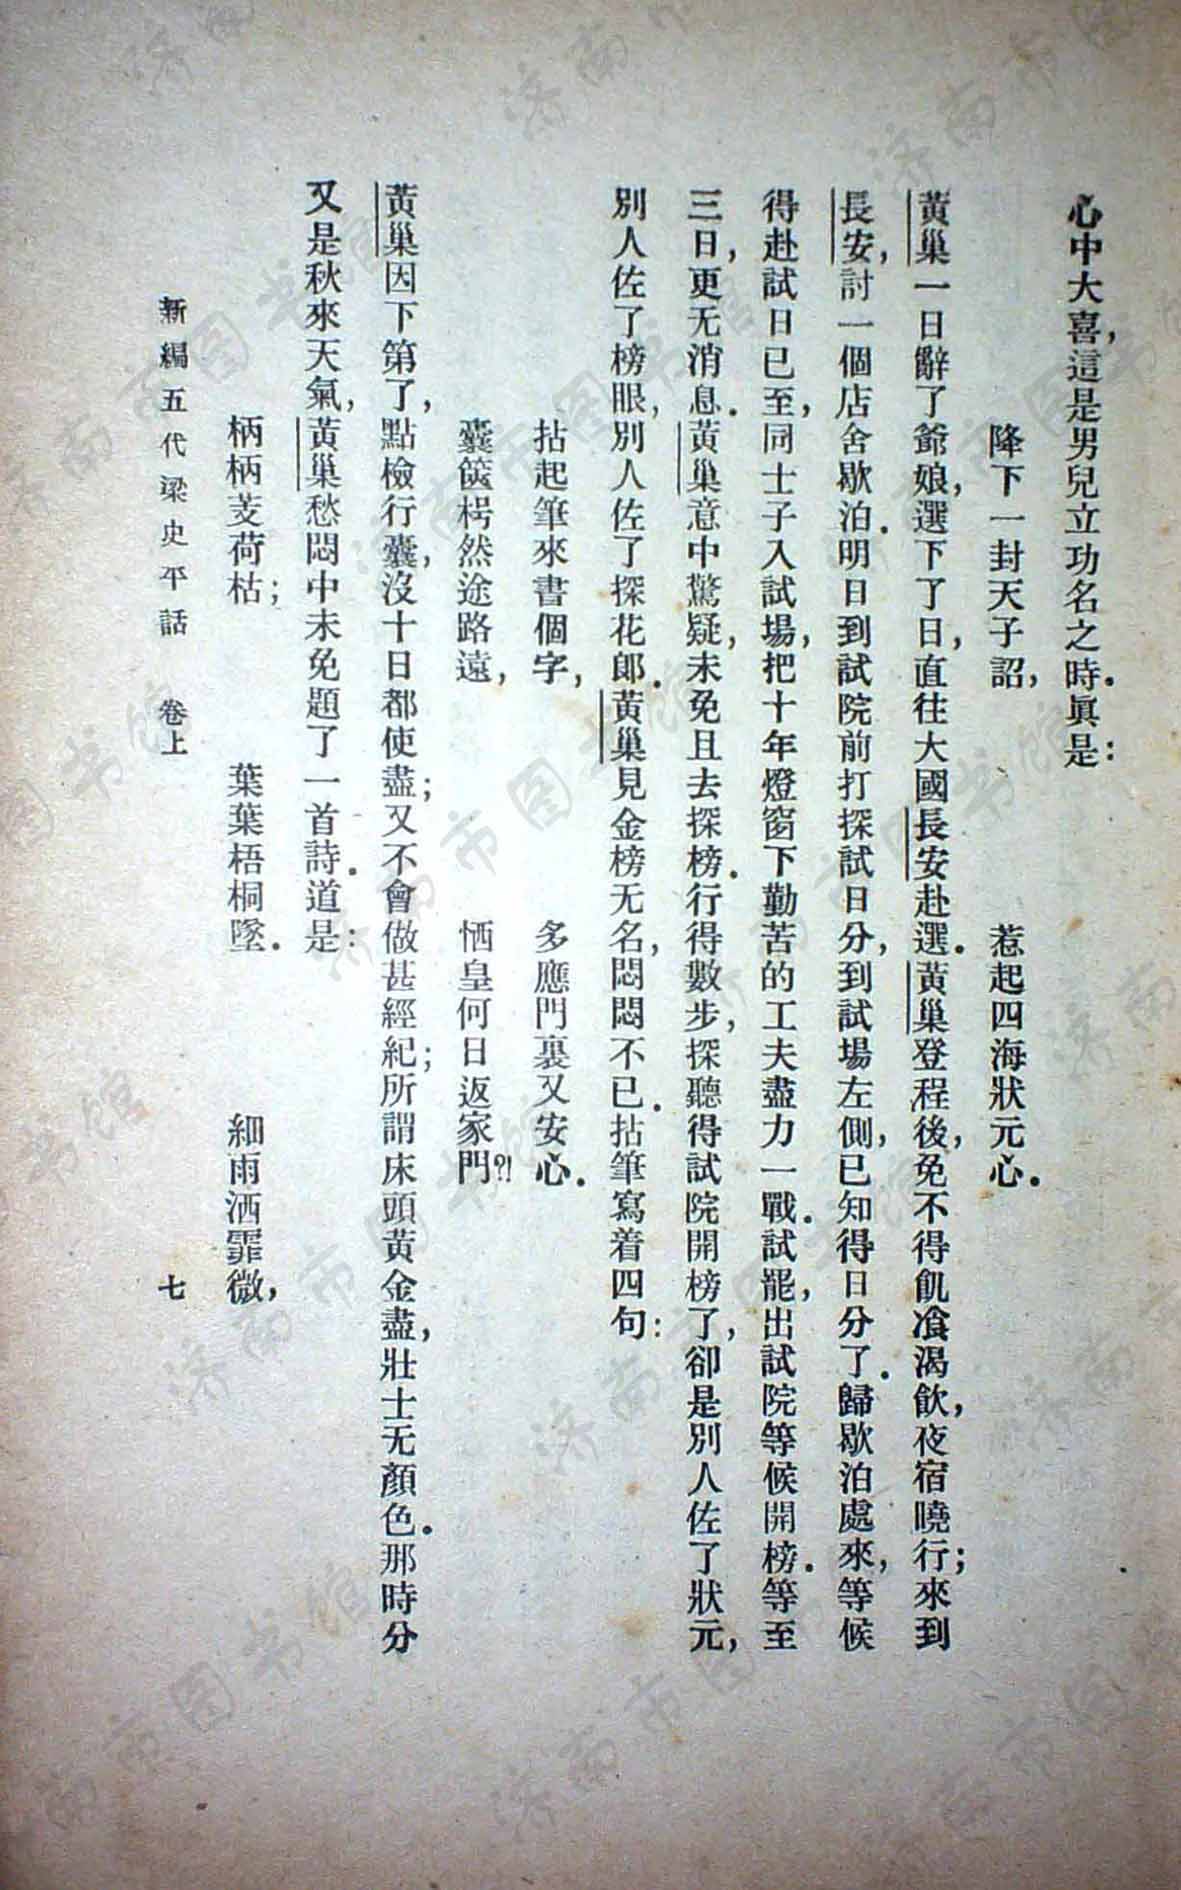 心中大喜，這是男兒立功名之時．眞是：
降下一封天子詔，　惹起四海狀元心．
黃巢一日辭了爺娘，選下了日，直往大國長安赴選．黃巢登程後，免不得飢飡渴飲，夜宿曉行；來到
長安，討一個店舍歇泊．明日到試院前打探試日分，到試場左側，已知得日分了．歸歇泊處來，等候
得赴試日已至，同士子入試場，把十年燈窗下勤苦的工夫盡力一戰．試罷，出試院等候開榜．等至
三日，更无消息．黃巢意中驚疑，未免且去探榜．行得數步，探聽得試院開榜了，卻是別人佐了狀元，
別人佐了榜眼，別人佐了探花郎．黃巢見金榜无名，悶悶不已．拈筆寫着四句：
拈起筆來書個字，　多應門裏又安心．
囊篋枵然途路遠，　恓皇何日返家門?!
黃巢因下第了，點檢行囊，沒十日都使盡；又不會做甚經紀；所謂床頭黃金盡，壯士无顏色．那時分
又是秋來天氣，黃巢愁悶中未免題了一首詩．道是：
柄柄芰荷枯；　葉葉梧桐墜．　細雨洒霏微，
新編五代梁史平話　卷上　七
济南市图书馆